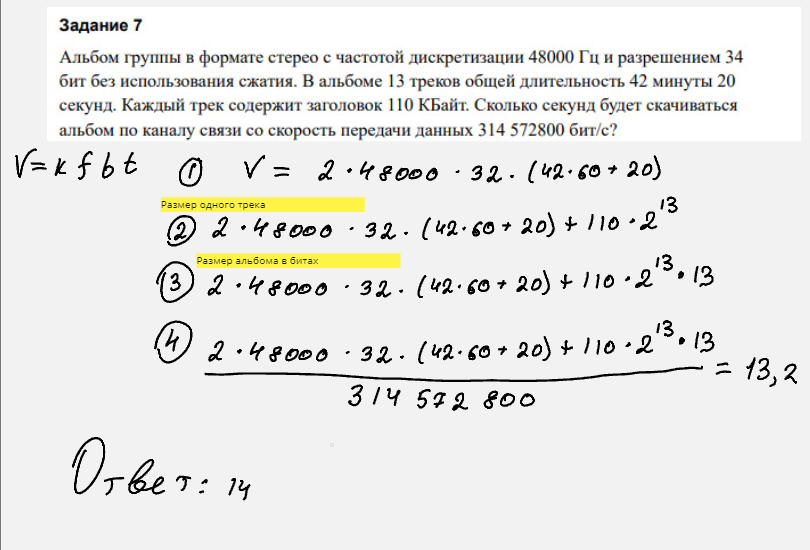 Задание 7
Альбом группы в формате стерео с частотой дискретизации 48000 Гц и разрешением 34
бит без использования сжатия. В альбоме 13 треков общей длительность 42 минуты 20
секунд. Каждый трек содержит заголовок 110 КБайт. Сколько секунд будет скачиваться
альбом по каналу связи со скорость передачи данных 314 572800 бит/с?
V = k f b t ① V = 2 · 48000 · 32 · (42·60 + 20)
Размер одного трека
② 2 · 48000 · 32 · (42·60 + 20) + 110 · 2^13
Размер альбома в битах
③ 2 · 48000 · 32 · (42·60 + 20) + 110 · 2^13 · 13
④ 2 · 48000 · 32 · (42·60 + 20) + 110 · 2^13 · 13
= 13,2
314 572 800
Ответ: 14